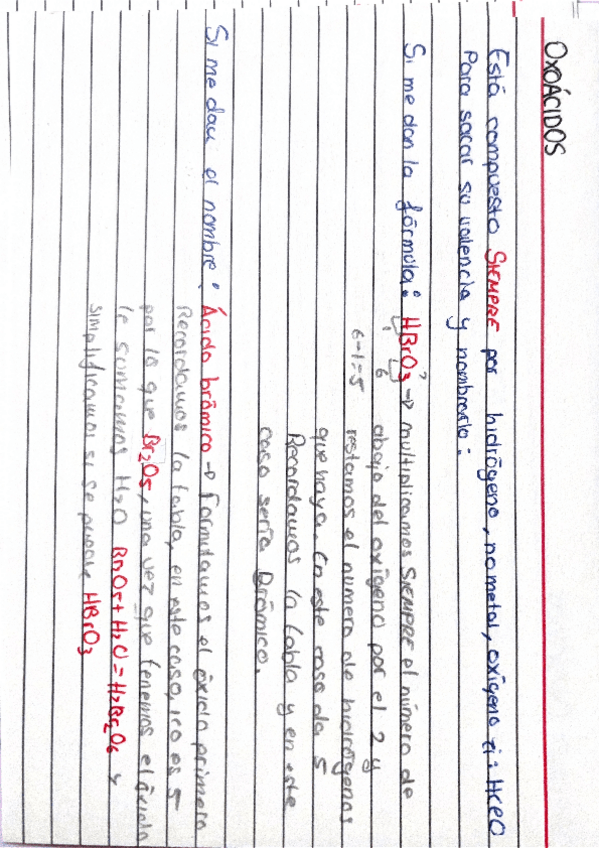 OXOÁCIDOS
Está compuesto SIEMPRE por hidrógeno, no metal, oxígeno
Para sacar su valencia y nombrarlo:
Si me dan la fórmula: HBrO3 → multiplicamos SIEMPRE el número de
6
abajo del oxígeno por el 2 y
6-1=5 restamos el número de hidrógenos
que haya. En este caso da 5
Recordamos la tabla y en este
caso sería Brómico.
Si me dan el nombre: Ácido brómico → formulamos el óxido primero
Recordamos la tabla, en este caso, ico es 5
por lo que Br2O5, una vez que tenemos el óxido
le sumamos H2O + H2O = H2Br2O6 y
simplificamos si se puede HBrO3